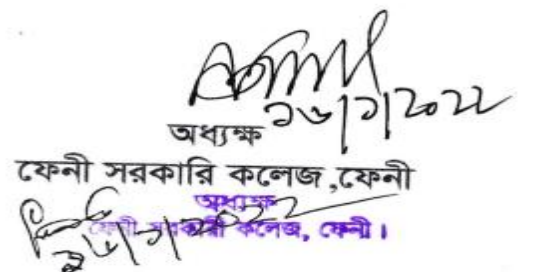 ১৬/১/২০২২
অধ্যক্ষ
ফেনী সরকারি কলেজ ,ফেনী
অধ্যক্ষ
ফেনী সরকারী কলেজ, ফেনী।